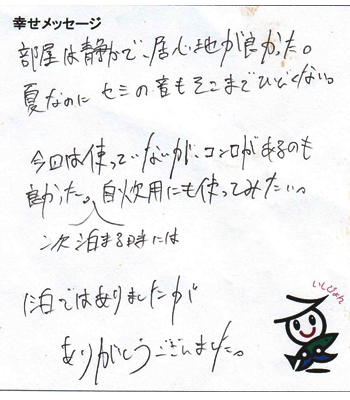 幸せメッセージ
部屋は静かで、居心地が良かった。
夏なのに セミの音もそこまでひどくない。
今回は使っていないが、コンロがあるのも
良かった。自炊用にも使ってみたい。
次泊まる時には
1泊ではありましたが
ありがとうございました。
いしぴょん